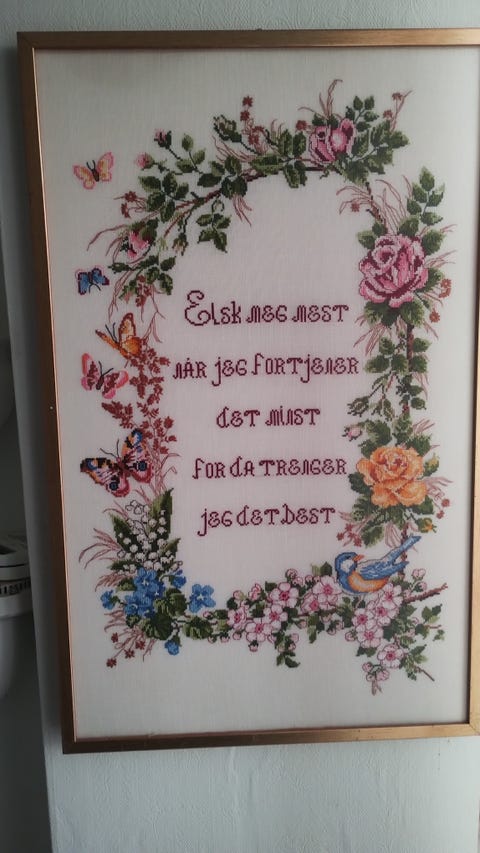 Elsk meg mest
når jeg fortjener
det minst
for da trenger
jeg det best